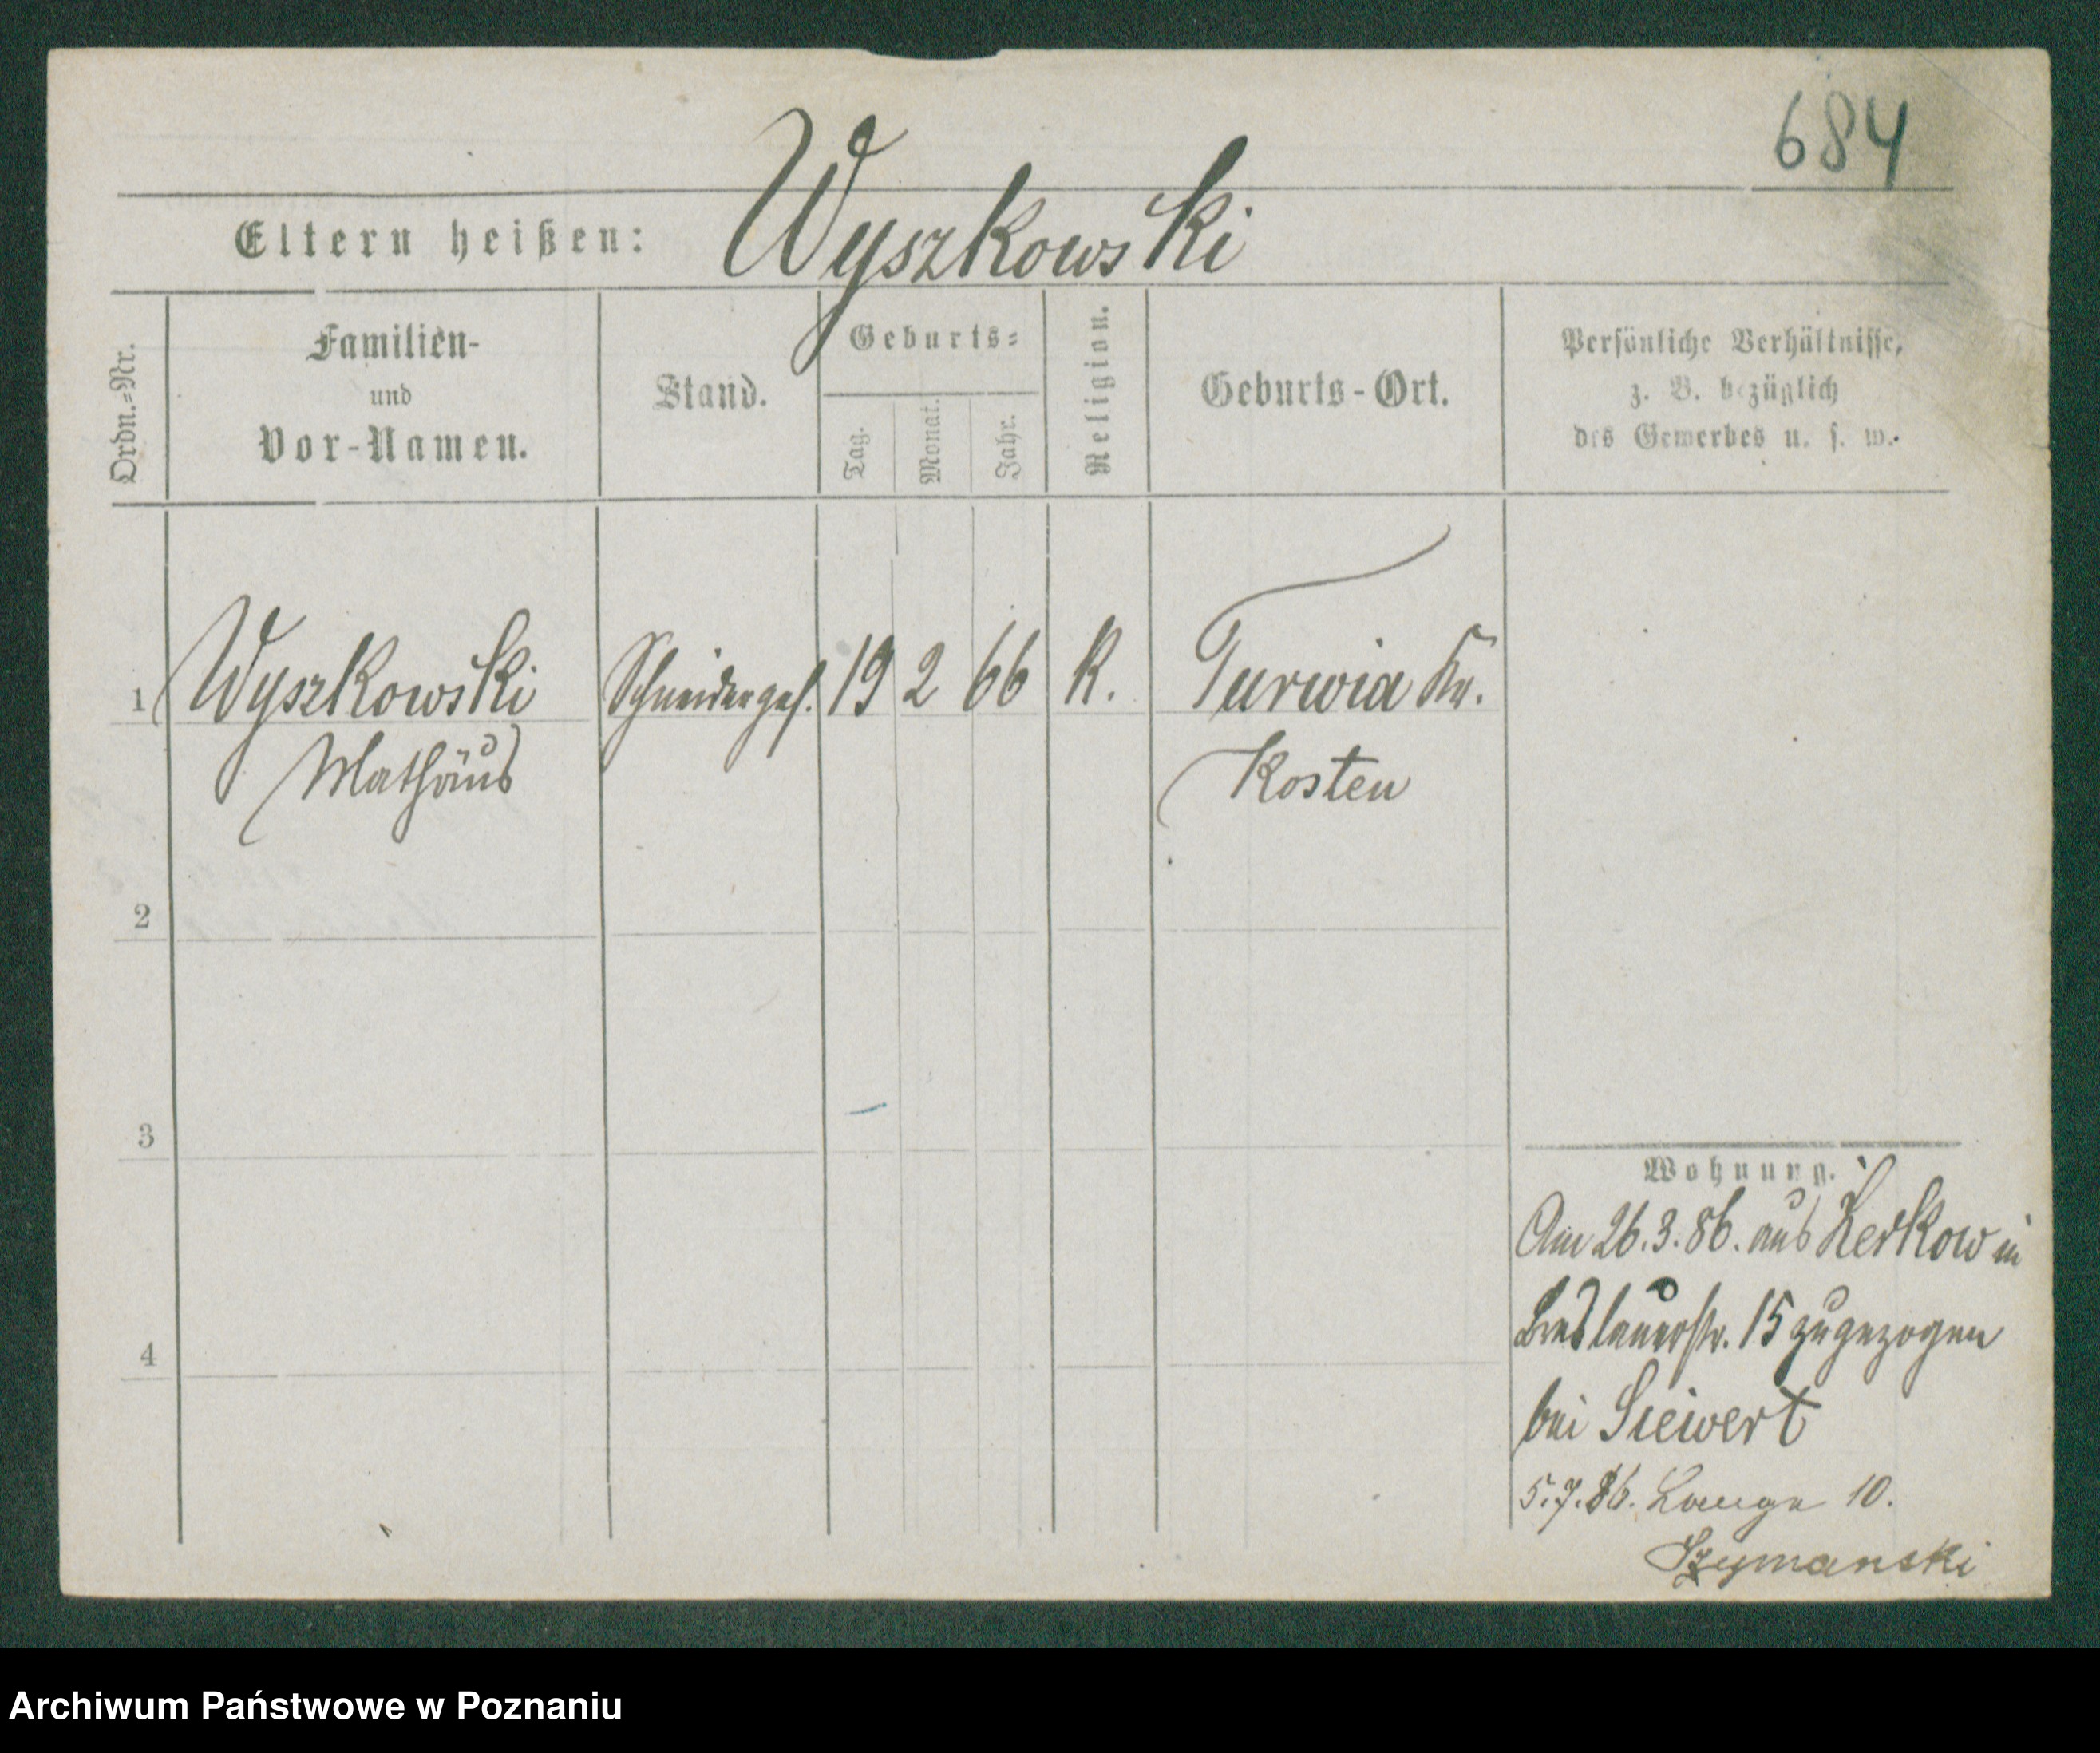 684
Eltern heißen: Wyszkowski
Ordn.=Nr.
Familien-
und
Vor-Namen.
Stand.
Geburts=
Tag.
Monat.
Jahr.
Religion.
Geburts-Ort.
Persönliche Verhältnisse,
z. B. bezüglich
des Gewerbes u. s. w.
1 Wyszkowski Schneiderges. 19 2 66 K. Turwia Kr.
Mathäus Kosten
2
3
4
Wohnung.
Am 26.3.86. aus Zerkow in
Breslauerstr. 15 zugezogen
bei Siewert
5.7.86. Lange 10.
Szymanski
Archiwum Państwowe w Poznaniu